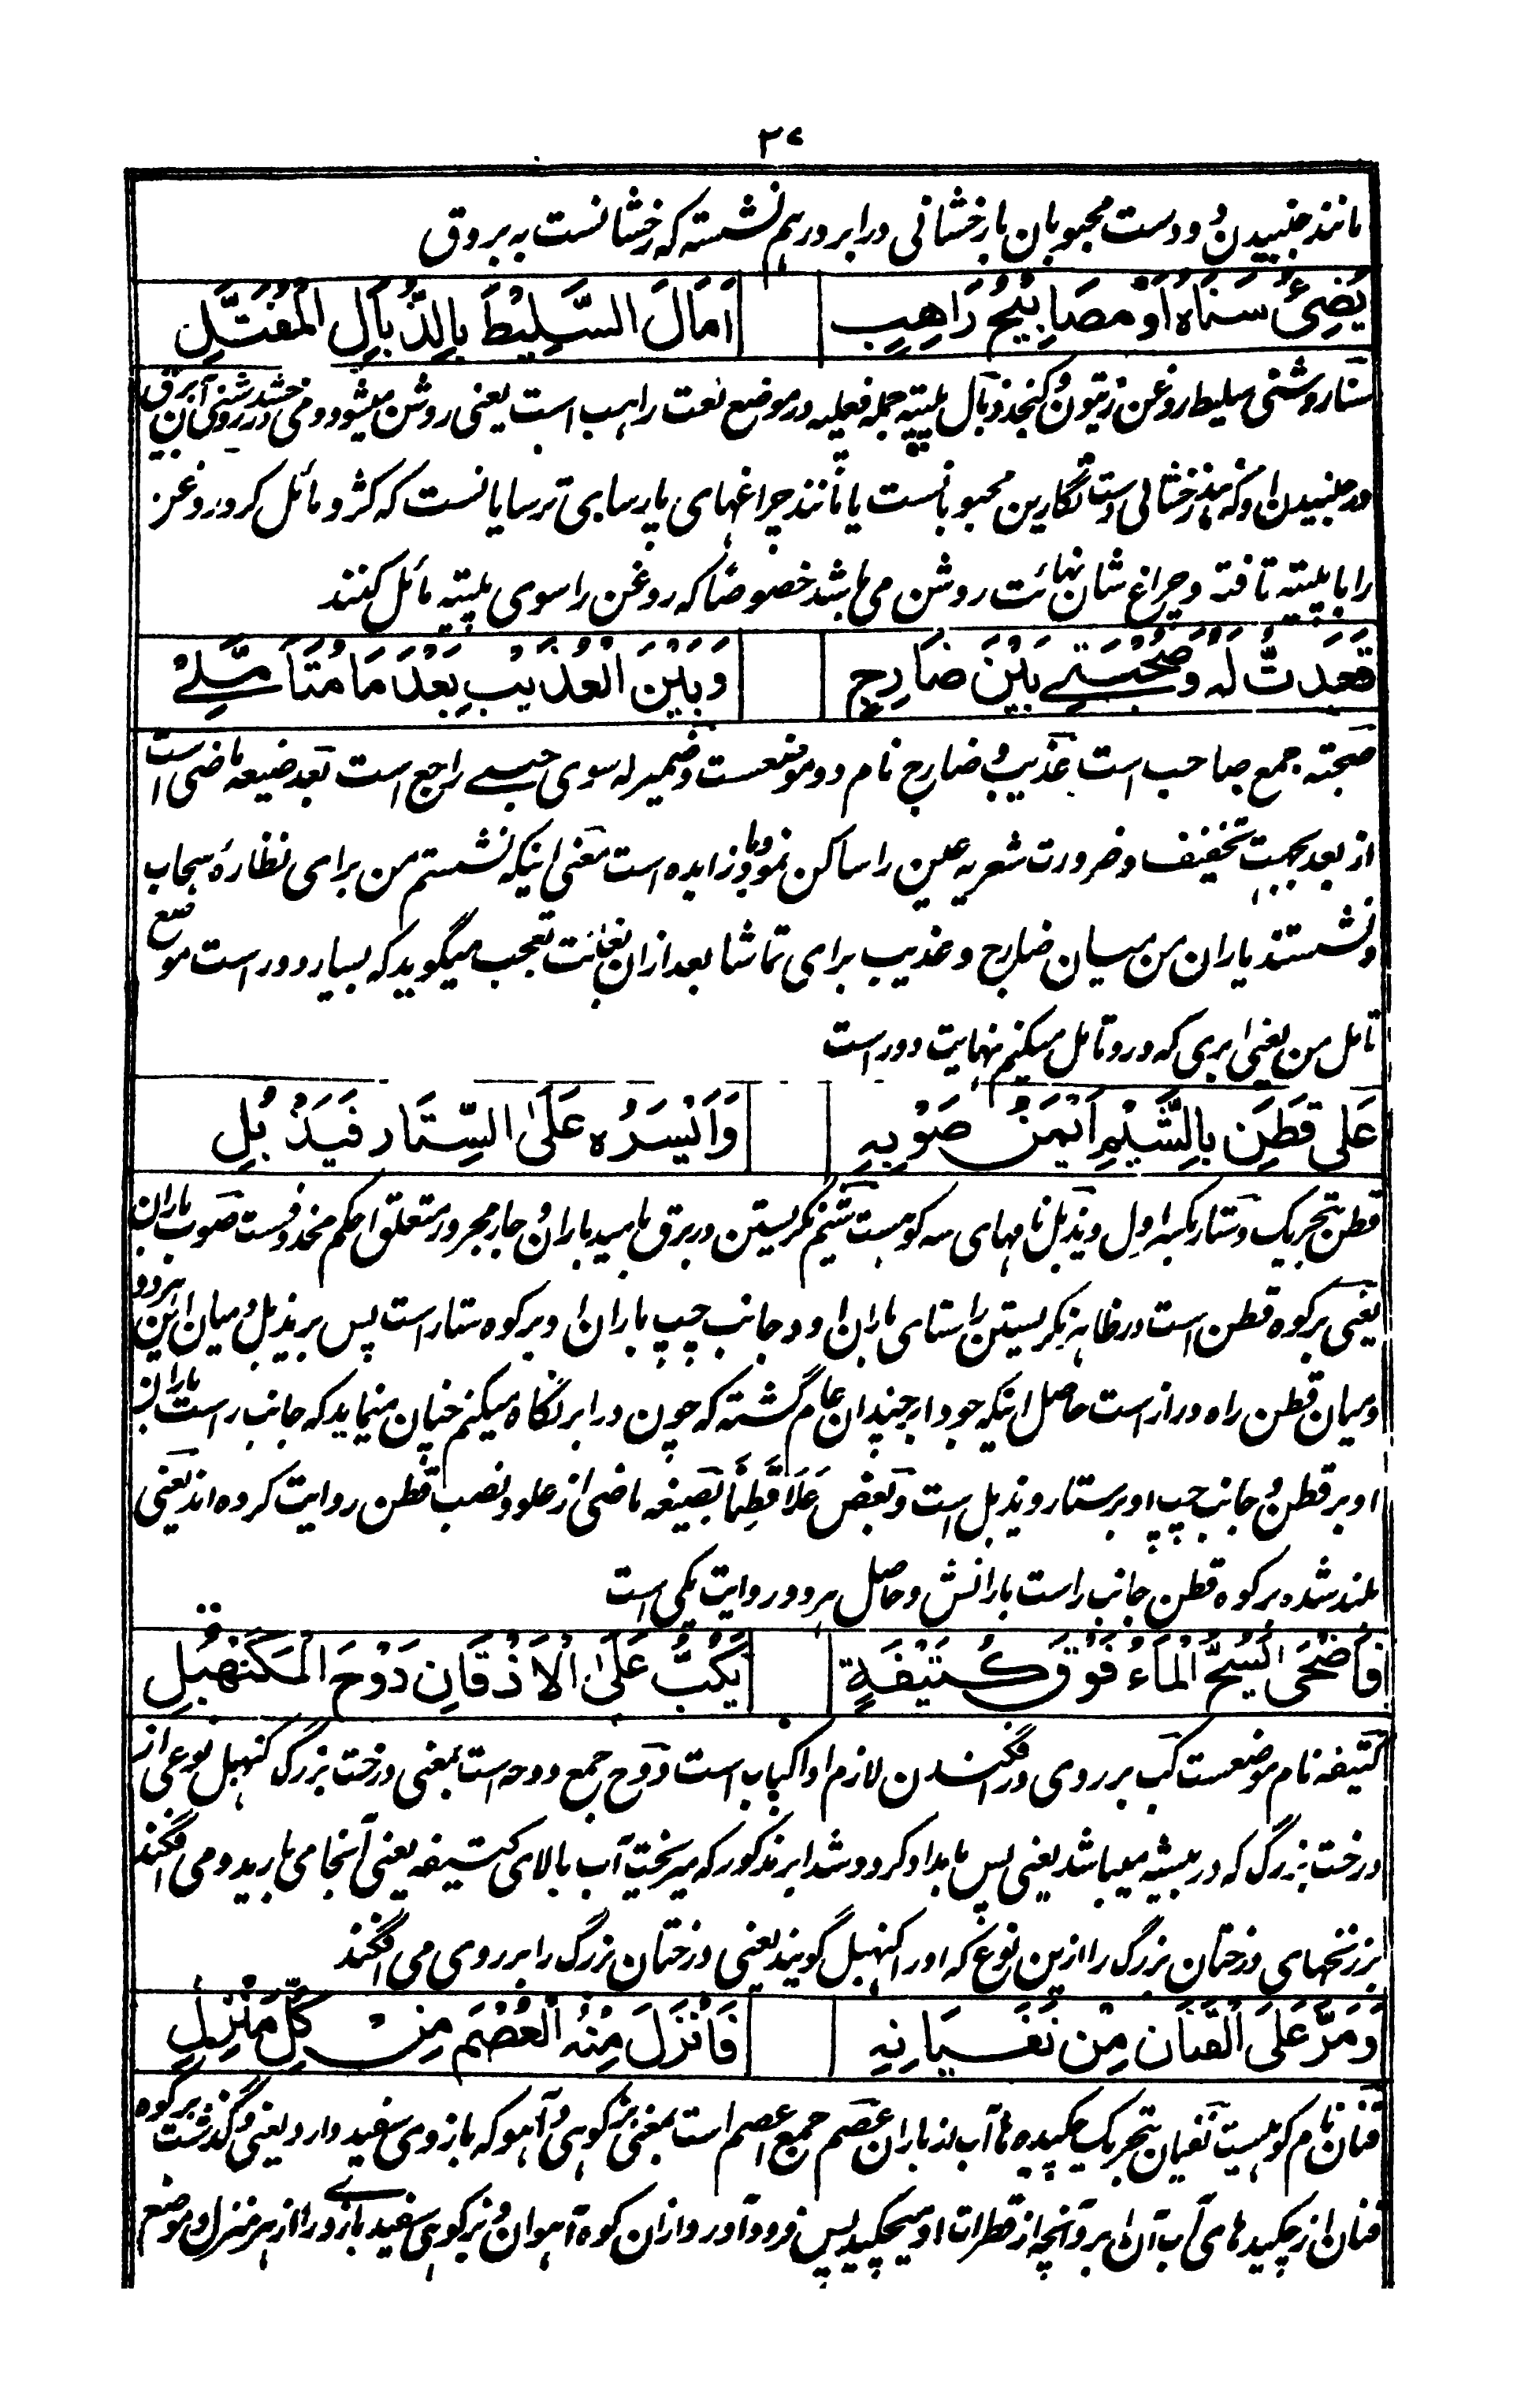 ۳۷
مانند جنبیدن دو دست محبوبان با رخشانی در ابر درهم نشسته که رخشانست به بروق
يُضِئُ سَنَاهُ أَوْ مَصَابِيْحُ رَاهِبٍ أَمَالَ السَّلِيْطَ بِالذُّبَالِ الْمُفَتَّلِ
سنا روشنی سلیط روغن زیتون و کنجد ذبال پلیته جمله فعلیه در موضع نعت راهب است یعنی روشن میشود و می خشد روشنی آن برق
در جنبیدن او که مانند رخشانی دست نگارین محبوبانست یا مانند چراغهای پارسای ترسایانست که کژ و مائل کرد روغن
را با پلیته تافته و چراغ شان نهائت روشن می باشد خصوصًا که روغن را سوی پلیته مائل کنند
قَعَدْتُّ لَهُ وَصُحْبَتِے بَيْنَ ضَارِجٍ وَبَيْنَ الْعُذَيْبِ بَعْدَ مَا مُتَأَمَّلِے
صحبته جمع صاحب است عذیب و ضارج نام دو موضعست و ضمیر له سوی حبے راجع است بعد صیغه ماضی است
از بعد بجهت تخفیف و ضرورت شعریه عین را ساکن نمود و ما زایده است معنی اینکه نشستم من برای نظارهٔ سحاب
و نشستند یاران من میان ضارج و عذیب برای تماشا بعد ازان بغائت تعجب میگوید که بسیار دور است موضع
تامل من یعنی ابری که درو تامل میکنم نهایت دور است
عَلَى قَطَنٍ بِالشَّيْمِ اَيْمَنُ صَوْبِهِ وَاَيْسَرُهُ عَلَى السِّتَارِ فَيَذْبُلِ
قطن بتحریک و ستار بکسر اول و یذبل نامهای سه کوهست شیم نگریستن در برق بامید باران و جار مجرور متعلق احکم محذوفست صوب باران
یعنی بر کوه قطن است در ظاهر نگریستن راستای باران او و جانب چپ باران او بر کوه ستار است پس بر یذبل و میان این هردو
و میان قطن راه دراز است حاصل اینکه جود ابر چندان عام گشته که چون در ابر نگاه میکنم چنان مینماید که جانب راست باران
او بر قطن و جانب چپ او بر ستار و یذبل است و بعض عَلَا قَطَنًا بصیغه ماضی از علو و نصب قطن روایت کرده اند یعنی
بلند شده بر کوه قطن جانب راست بارانش و حاصل هر دو روایت یکی است
فَأَضْحَى يَسُحُّ الْمَاءُ فَوْقَ كُتَيْفَةٍ يَكُبُّ عَلَى الْاَذْقَانِ دَوْحَ الْكَنَهْبُلِ
کتیفه نام موضعست کب بر روی در افگندن لازم او اکباب است دوح جمع دوحه است بمعنی درخت بزرگ کنهبل نوعی از
درخت بزرگ که در بیشه میباشد یعنی پس بامداد کرد و شد ابر مذکور که میریخت آب بالای کتیفه یعنی آنجا می بارید و می افگند
بر زنخهای درختان بزرگ را ازین نوع که او را کنهبل گویند یعنی درختان بزرگ را بر روی می افگند
وَمَرَّ عَلَى الْقَنَانِ مِنْ نَفَيَانِهِ فَأَنْزَلَ مِنْهُ الْعُصْمَ مِنْ كُلِّ مَنْزِلِ
قنان نام کوهیست نفیان بتحریک چکیده ها آب از باران عصم جمع اعصم است بمعنی بز کوهی و آهو که بازوی سفید دارد یعنی و گذشت بر کوه
قنان از چکیدهای آب آن ابر و آنچه از قطرات او میچکید پس فرود آورد ازان کوه آهوان و بز کوهی سفید بازو را از هر منزل و موضع